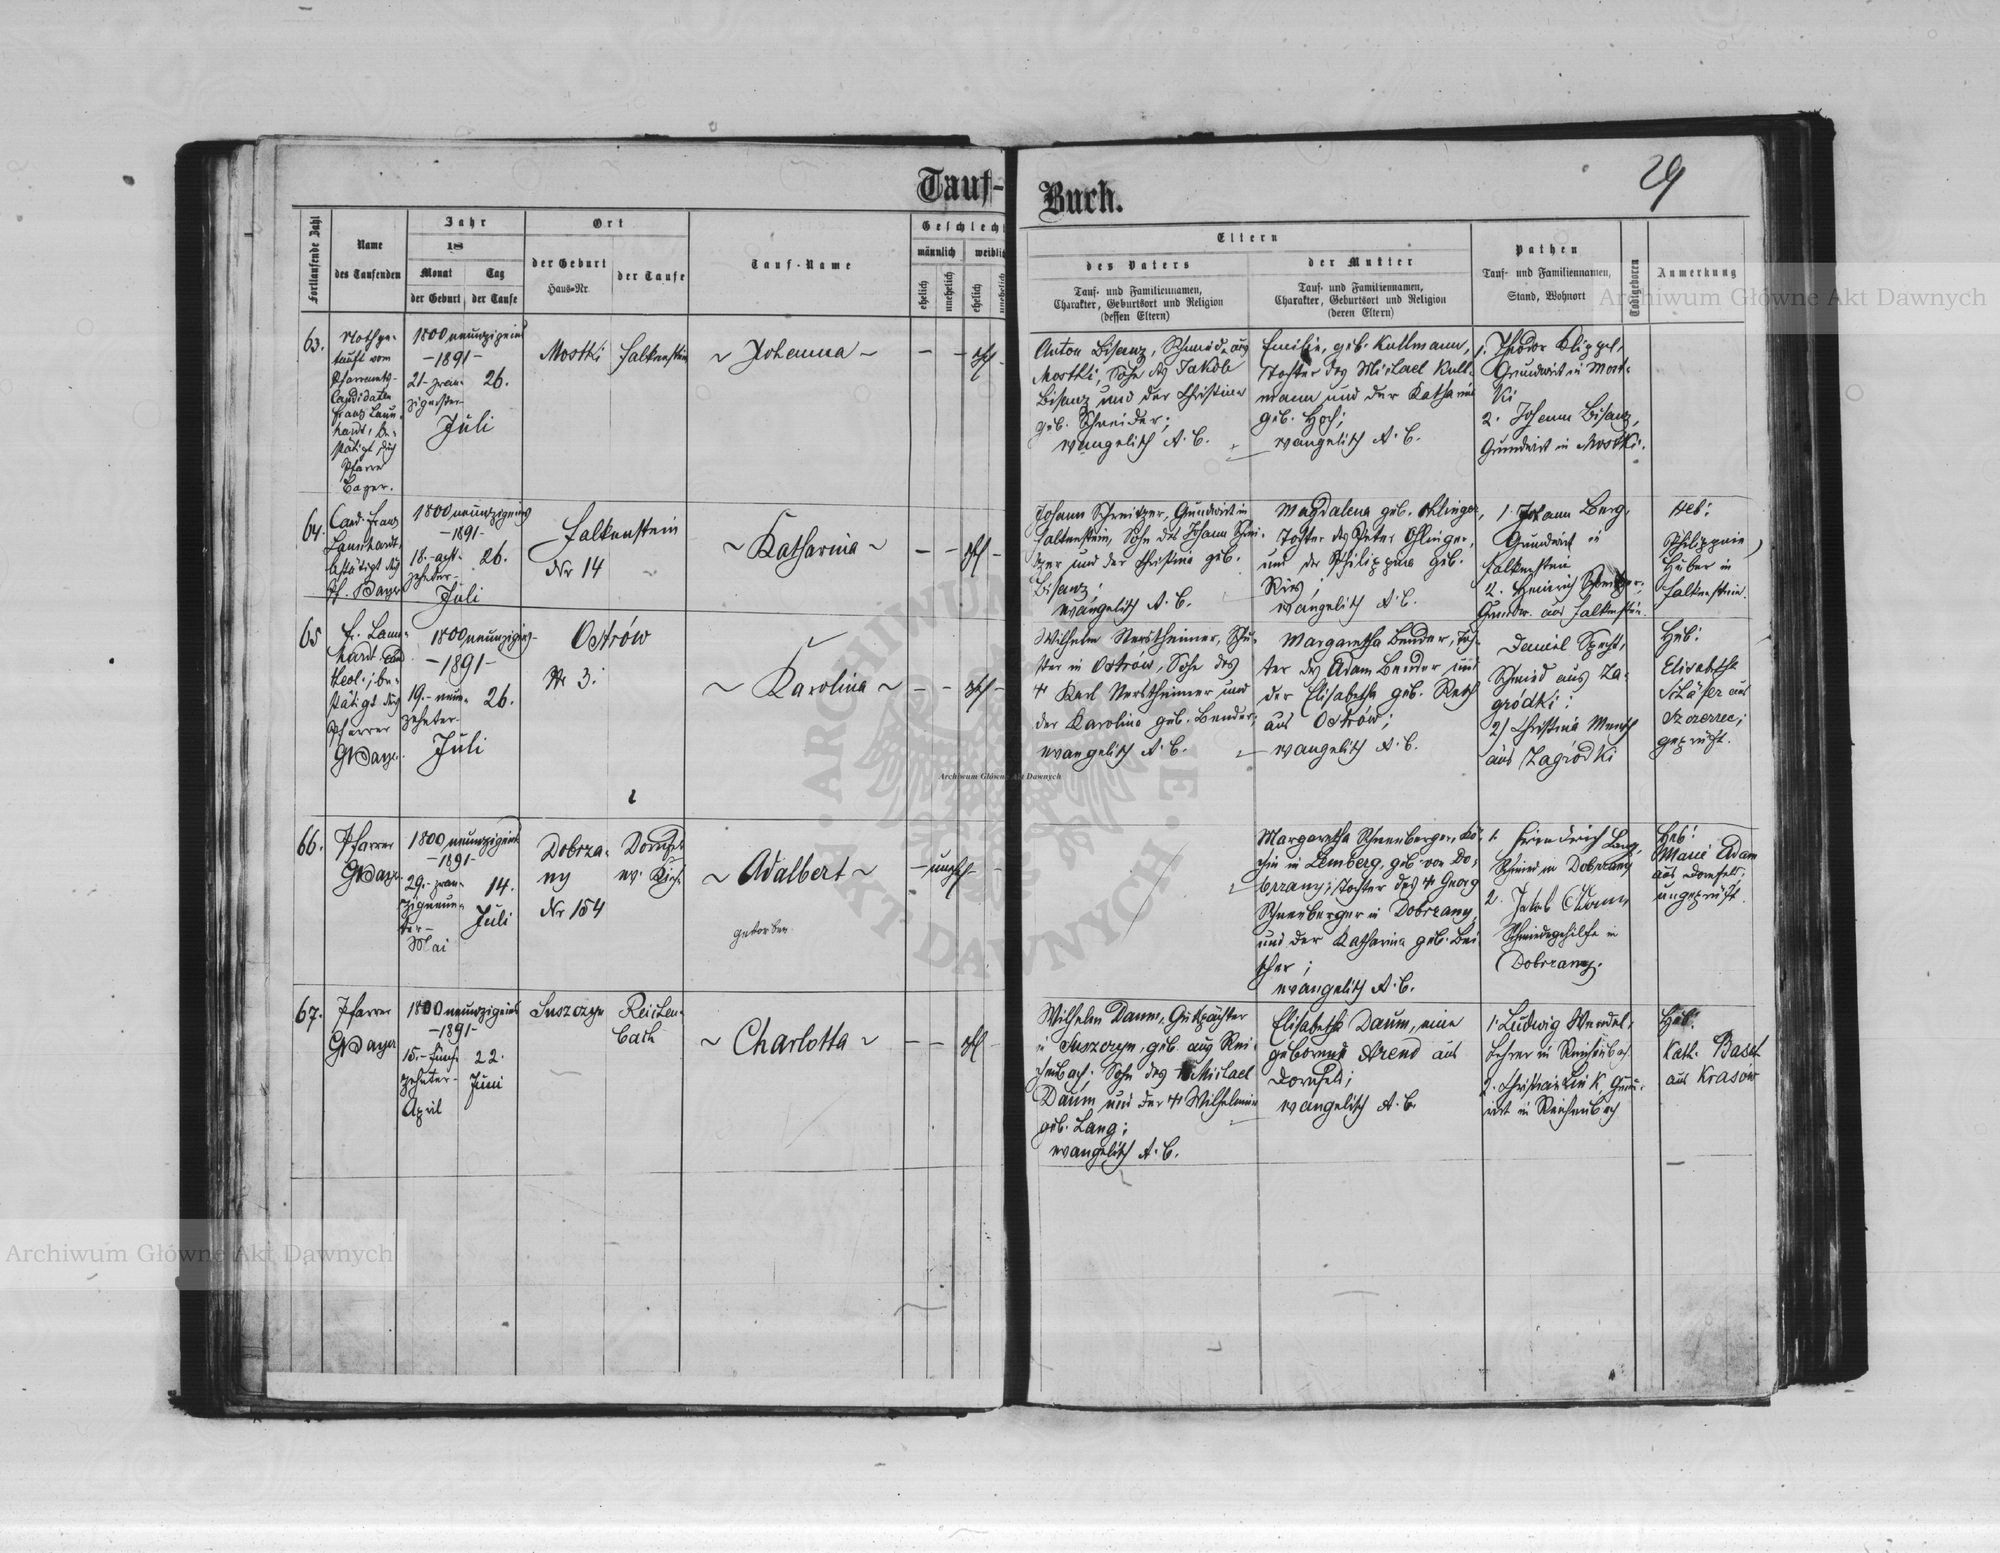 Tauf-Buch.
29
Fortlaufende Zahl
Name
des Taufenden
Jahr
18
Monat
Tag
der Geburt
der Taufe
Ort
der Geburt
Haus-Nr.
der Taufe
Tauf-Name
Geschlecht
männlich
weiblich
ehelich
unehelich
ehelich
unehelich
Eltern
des Vaters
Tauf- und Familiennamen,
Charakter, Geburtsort und Religion
(dessen Eltern)
der Mutter
Tauf- und Familiennamen,
Charakter, Geburtsort und Religion
(deren Eltern)
Pathen
Tauf- und Familiennamen,
Stand, Wohnort
Todtgeboren
Anmerkung
63.
Nothge-
tauft vom
Pfarramts-
Candidaten
Franz Laun-
hardt, be-
stätigt durch
Pfarrer
Bayer.
1800 neunzigeins
-1891-
21.- zwan-
zigster-
26.
Juli
Mostki
Falkenstein
~ Johanna ~
ehl
Anton Bisanz, Schmied aus
Mostki, Sohn des Jakob
Bisanz und der Christina
geb. Schneider;
evangelisch A. C.
Emilie, geb. Kullmann,
Tochter des Michael Kull-
mann und der Katharina
geb. Hoch;
evangelisch A. C.
1. Theodor Klippel,
Grundwirt in Most-
ki
2. Johann Bisanz,
Grundwirt in Mostki.
64.
Cand. Franz
Launhardt,
bestätigt durch
Pf. Bayer
1800 neunzigeins
-1891-
18.- acht-
zehnter-
26.
Juli
Falkenstein
Nr 14
~ Katharina ~
ehl
Johann Schweitzer, Grundwirt in
Falkenstein, Sohn des Johann Schwei-
tzer und der Christina geb.
Bisanz;
evangelisch A. C.
Magdalena geb. Ohlinger,
Tochter des Peter Ohlinger,
und der Philippina geb.
Ries;
evangelisch A. C.
1. Johann Berg,
Grundwirt in
Falkenstein
2. Heinrich Schweitzer,
Grundw. aus Falkenstein.
Heb:
Philippine
Huber in
Falkenstein.
65
Fr. Laun-
hardt Cand
theol.; be-
stätigt durch
Pfarrer
GBayer.
1800 neunzigeins-
-1891-
19.- neun-
zehnter-
26.
Juli
Ostrów
Nr 3.
~ Karolina ~
ehl
Wilhelm Nerstheimer, Schu-
ster in Ostrów, Sohn des
Karl Nerstheimer und
der Karolina geb. Bender;
evangelisch A. C.
Margaretha Bender, Toch-
ter des Adam Bender und
der Elisabetha geb. Reth
aus Ostrów;
evangelisch A. C.
Daniel Specht,
Schmied aus Za-
gródki;
2) Christina
aus Zagródki
Heb:
Elisabetha
Schäfer aus
Szczerzec;
geprüft.
66.
Pfarrer
GBayer
1800 neunzigeins
-1891-
29.- zwan-
zigneun-
ter-
Mai
14.
Juli
Dobrza-
ny
Nr 154
Dornf.
ev. Kirche
~ Adalbert ~
gestorben
unehl
Margaretha Schneeberger, Kö-
chin in Lemberg, geb. von Do-
brzany; Tochter des Georg
Schneeberger in Dobrzany
und der Katharina geb. Bei-
scher;
evangelisch A. C.
1. Friedrich Lang,
Schmied in Dobrzany
2. Jakob
Schmiedegehilfe in
Dobrzany.
Heb:
Marie Adam
aus Dornfeld;
ungeprüft.
67.
Pfarrer
GBayer
1800 neunzigeins
-1891-
15.- fünf-
zehnter-
April
22.
Juni
Suszczyn
Reichen-
bach
~ Charlotta ~
ehl
Wilhelm Daum, Gutspächter
in Suszczyn, geb. aus Rei-
chenbach, Sohn des Michael
Daum und der Wilhelmine
geb. Lang;
evangelisch A. C.
Elisabetha Daum, eine
geborene Arend aus
Dornfeld;
evangelisch A. C.
1. Ludwig Wendel,
Lehrer in Reichenbach
2. Christian Link, Grund-
wirt in Reichenbach
Heb:
Kath. Bast
aus Krasów
Archiwum Główne Akt Dawnych
Archiwum Główne Akt Dawnych
Archiwum Główne Akt Dawnych